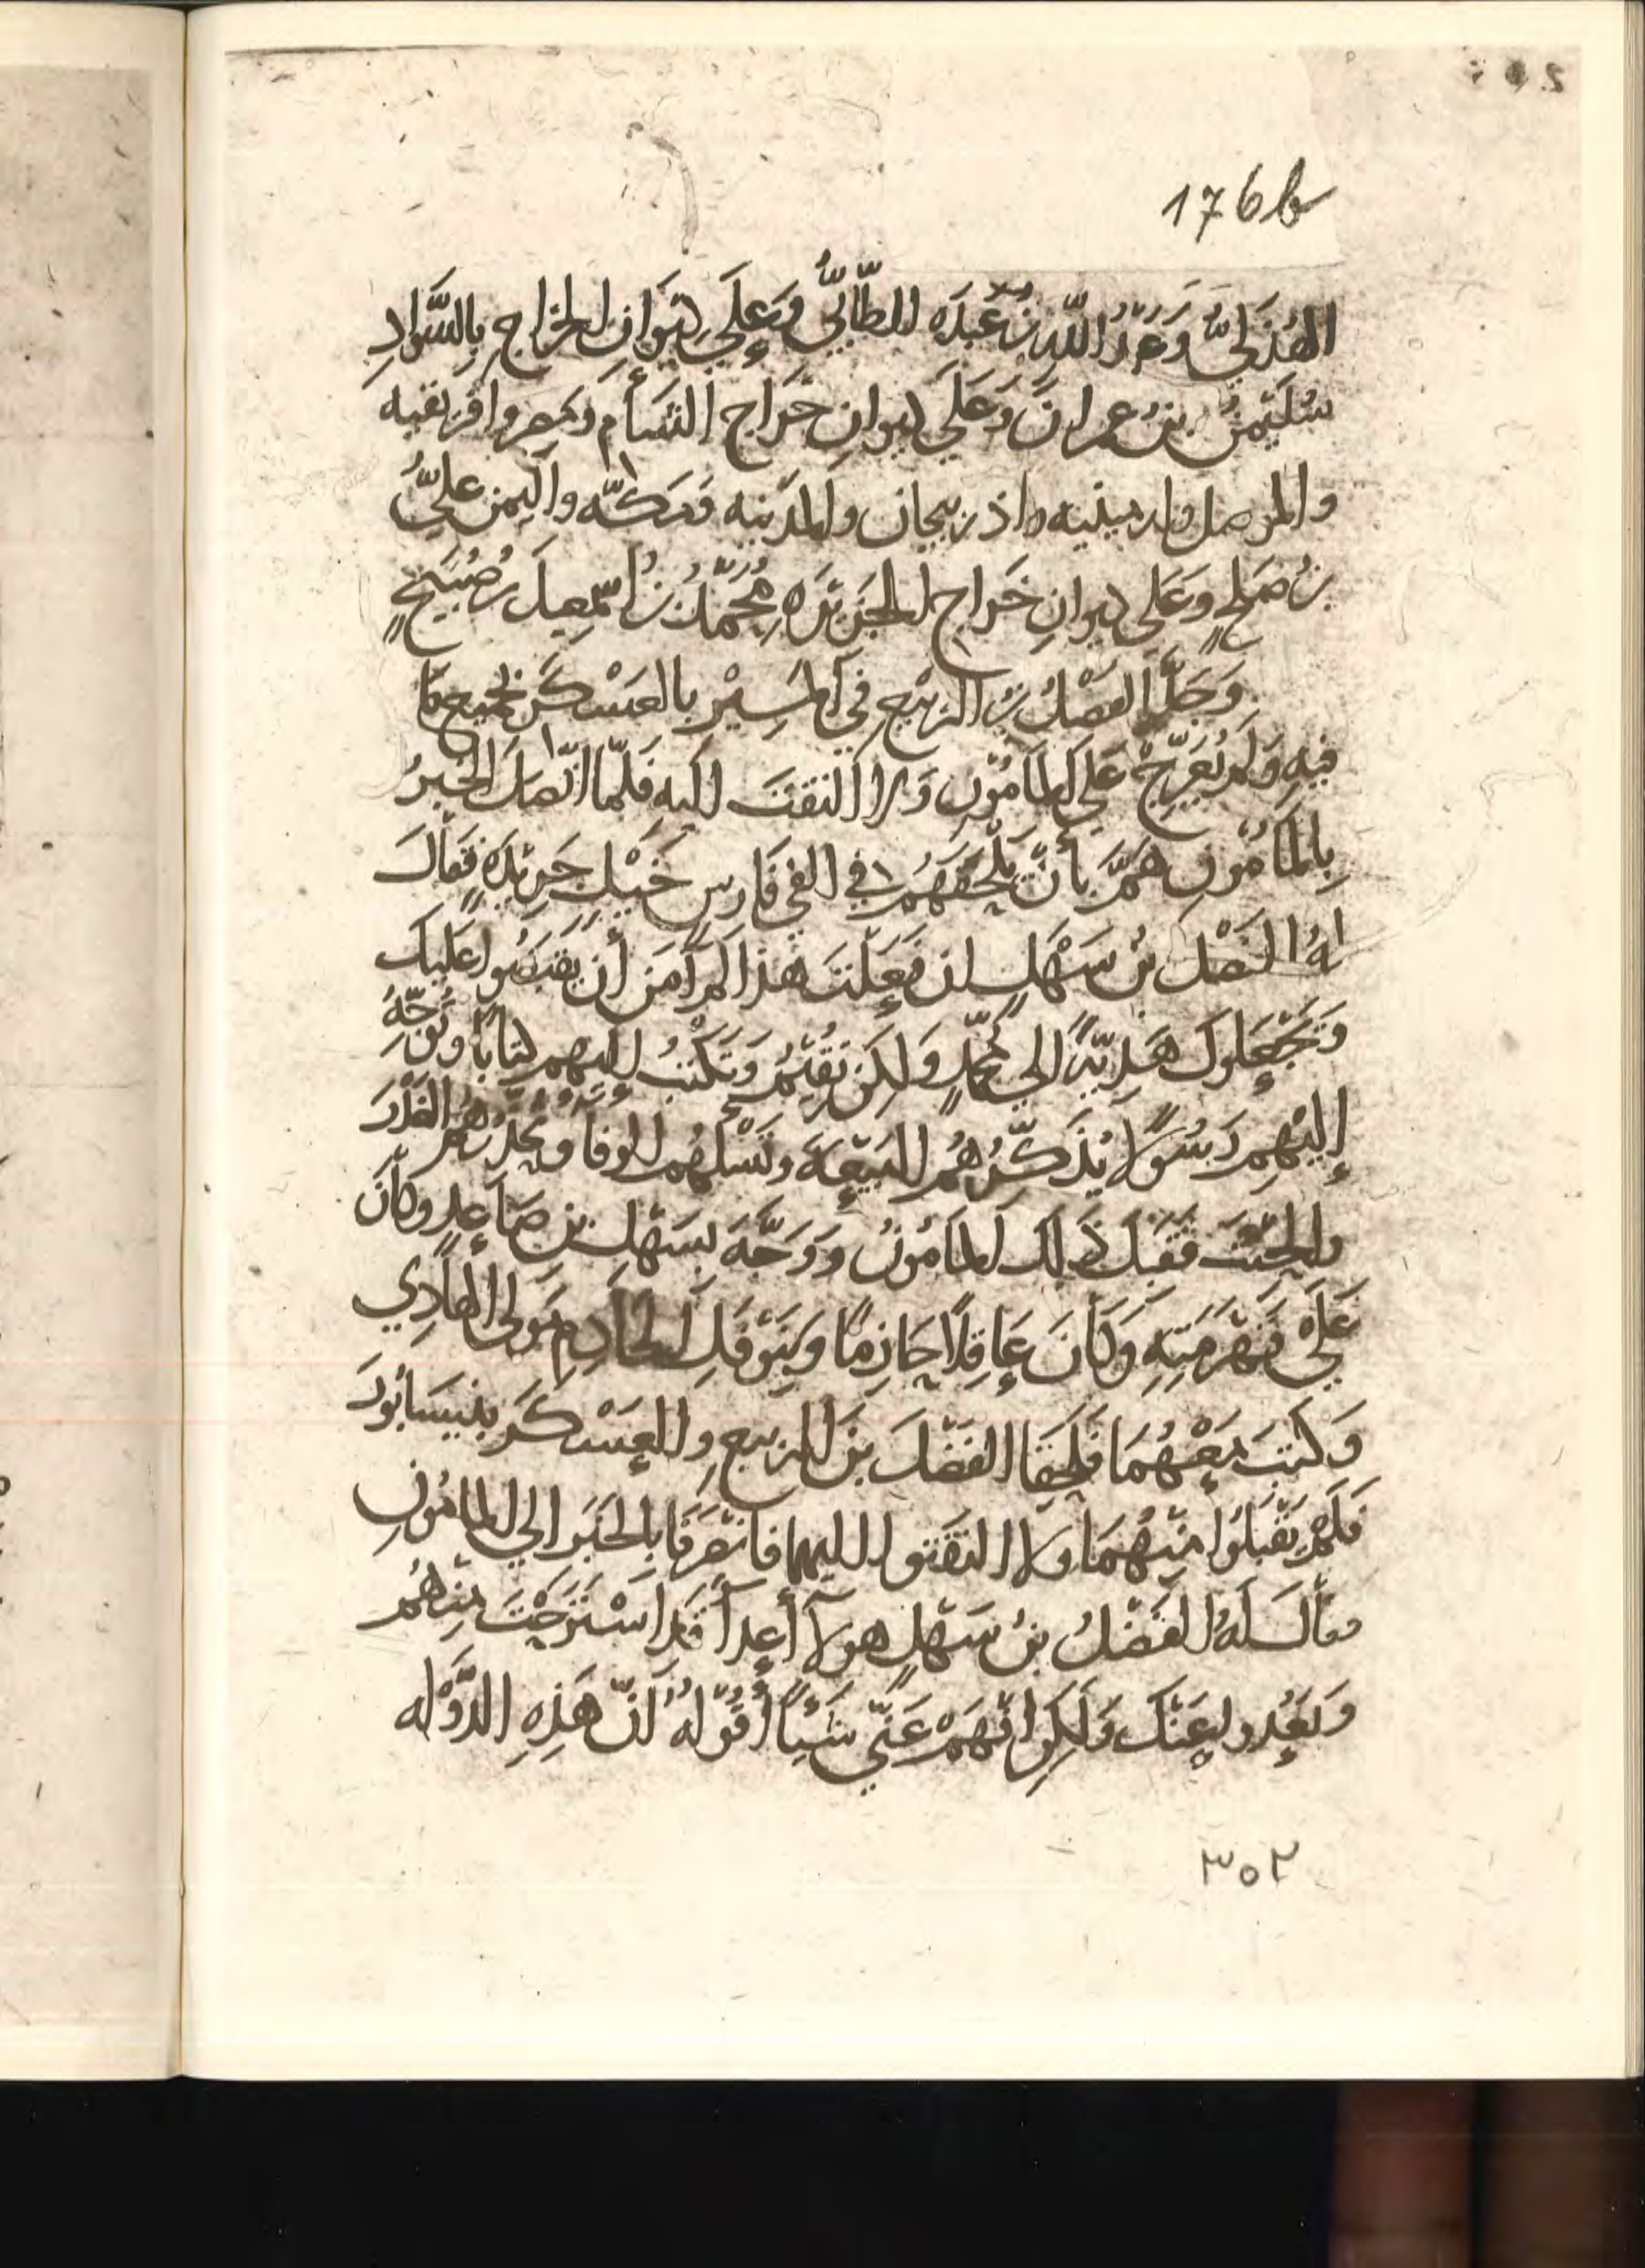 176b
الهُذَليُّ وَعَبْدُ اللّهِ بنُ عَبدَه الطّائيُّ وَعلَى دِيوَانِ الخراجِ بِالسَّوَادِ
سُلَيْمنُ بنُ عمرانَ وَعَلَي ديوانِ خَرَاج الشأم ومصر وافريقيه
والموصل وارمينيه واذربيجان والمدينه ومكّه واليمن عليُّ
بنُ صَلحٍ وَعَلى ديوانِ خَراجِ الجَزيرَهِ مُحَمَّدُ بنُ اسمعِيلَ بنِ صُبَيحٍ
وَجَدَّ الفَضْلُ بنُ الرّبيعِ فِي المَسِيْرِ بالعَسْكَرِ بجميع مَا
فيهِ وَلم يُعَرِّجْ عَلى المأمُونِ وَلا التفتَ إليه فَلَمّا اتّصلَ الخبرُ
بِالمَأمُونِ هَمَّ بأنْ يَلْحَقَهُم في الفي فَارسٍ خَيْلٍ جَريدَةٍ فقالَ
لهُ الفَضْلُ بنُ سَهْلٍ ان فَعَلتَ هذا لم آمَن أن يقبَضُوا عَليكَ
وَتَجْعَلوكَ هَدِيّةً الى مُحمّدٍ وَلكِن تُقيمُ وَتَكْتُبُ إليهم كتابًا وتُوَجِّهُ
إليْهِم رَسُوْلا يُذَكِّرُهُم البَيْعَةَ وتَسْلهُم الوفا ويُحَذِّرهُم الغَدْرَ
والحِنْثَ فَقَبِلَ ذلِكَ المأمُونُ وَوَجَّهَ بسَهْلِ بنِ صَاعدٍ وكانَ
عَلَى قَهْرَمَتِهِ وَكَانَ عَاقِلًا حَازِمًا وَبِنَوْفَلٍ الخَادِمِ مَولى الهَادِي
وَكتبَ مَعْهُمَا فَلَحِقَا الفَضْلَ بنَ الربيعِ والعَسْكَرَ بنيسَابُورَ
فَلم يَقبَلوُا مِنهُمَا ولا التفَتوا اليهما فَانْصَرَفَا بِالخَبَرِ الى المامُونِ
فقالَ لَهُ الفَضْلُ بنُ سَهْلٍ هولآ أعدآ قد اسْتَرَحْتَ مِنهُم
وَبَعُدوا عَنْكَ وَلكِن افْهَمْ عَنّي شَيْئًا أقُوْلهُ أنّ هَذِهِ الدَّوْله
٣٥٢